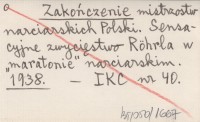 Zakończenie mistrzostw
narciarskich Polski. Sensa-
cyjne zwycięstwo Röhrla w
"maratonie" narciarskim.
1938. — IKC nr 40.